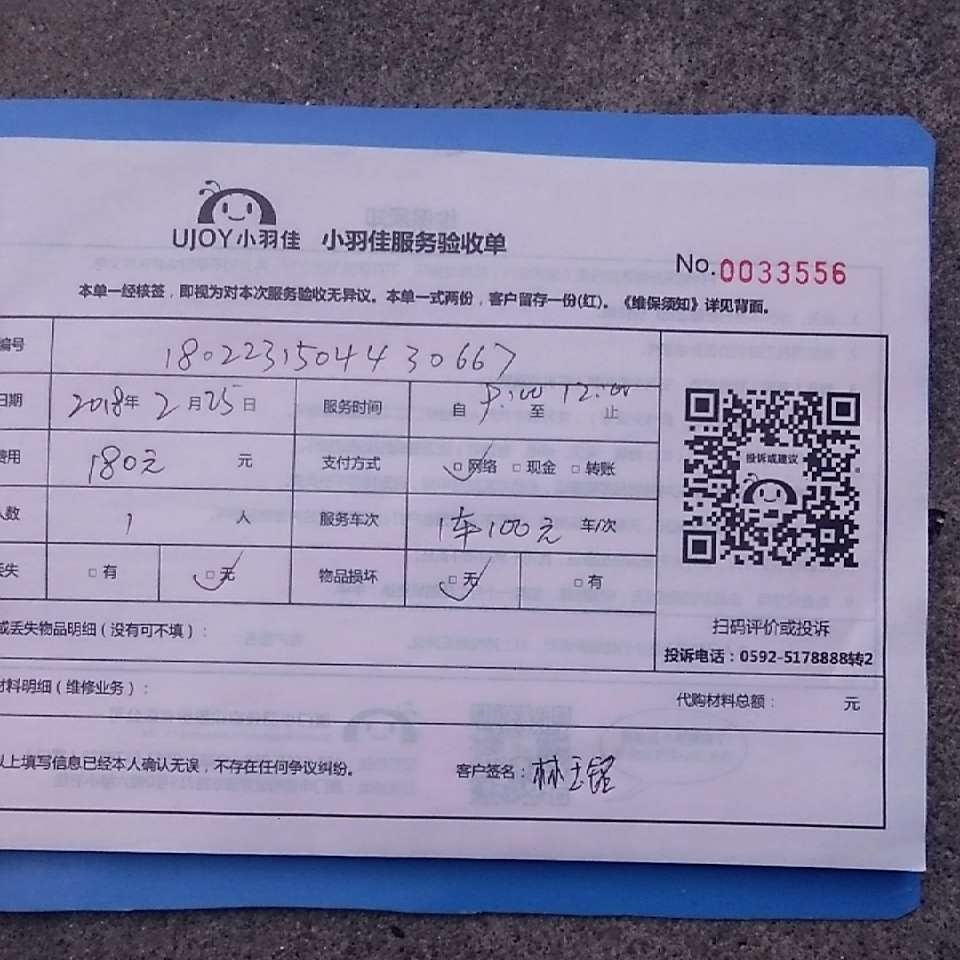 UJOY小羽佳 小羽佳服务验收单
No.0033556
本单一经核签，即视为对本次服务验收无异议。本单一式两份，客户留存一份(红)。《维保须知》详见背面。
编号 180223150443 0667
日期 2018年 2月25日 服务时间 自 9:00 至 12:00 止
费用 180元 元 支付方式 □网络 □现金 □转账
人数 1 人 服务车次 1车100元 车/次
丢失 □有 □无 物品损坏 □无 □有
投诉或建议
扫码评价或投诉
投诉电话：0592-5178888转2
或丢失物品明细（没有可不填）：
材料明细（维修业务）： 代购材料总额： 元
以上填写信息已经本人确认无误，不存在任何争议纠纷。 客户签名：林玉